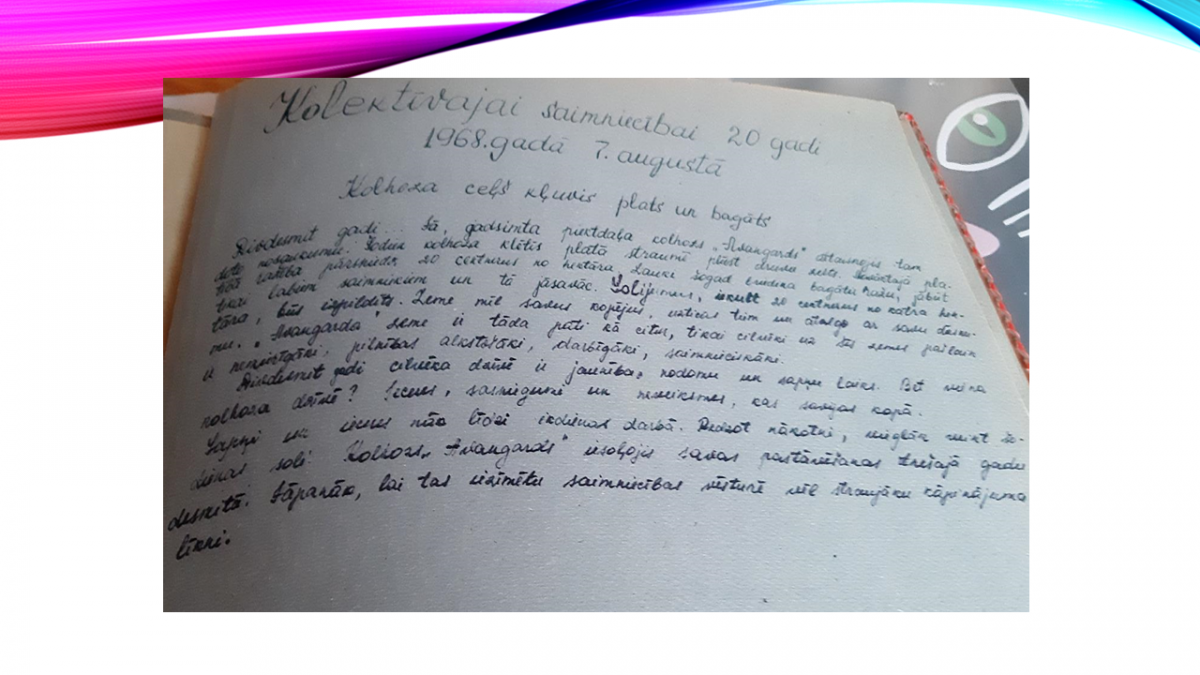 Kolektīvajai saimniecībai 20 gadi
1968.gadā 7. augustā
Kolhoza ceļš kļuvis plats un bagāts
Divdesmit gadi... Jā, gadsimta piektdaļa kolhozs „Avangards" attaisnojis tam
doto nosaukumu. Šoden kolhoza klētīs platā straumē plūst druva zelts.
labība pārsniedz 20 centnerus no hektāra. Lauki šogad bagātu ražu, jābūt
labiem saimniekiem un tā jāsavāc. Solījumus, iekult 20 centnerus no katra hek-
tāra, būs izpildīts. Zeme mīl savus kopējus, uzticas tiem un atalgo ar savu dāsnu-
mu. „Avangarda" zeme ir tāda pati kā citur, tikai cilvēki uz šīs zemes pašlaik
ir nemierīgāki, pilnības alkstošāki, darbīgāki, saimnieciskāki.
Divdesmit gadi cilvēka dzīvē ir jaunība, nodomu un sapņu laiks. Bet viena
kolhoza dzīvē? Ieceres, sasniegumi un neveiksmes, kas savijas kopā.
Sapņi un ieceres nāk līdzi ikdienas darbā. Redzot nākotni, vieglāk mint šo-
dienas soli. Kolhozs „Avangards" iesoļojis savas pastāvēšanas trešajā gadu
desmitā. Jāpanāk, lai tas iezīmētu saimniecības vēsturē vēl straujāku kāpinājuma
līkni.